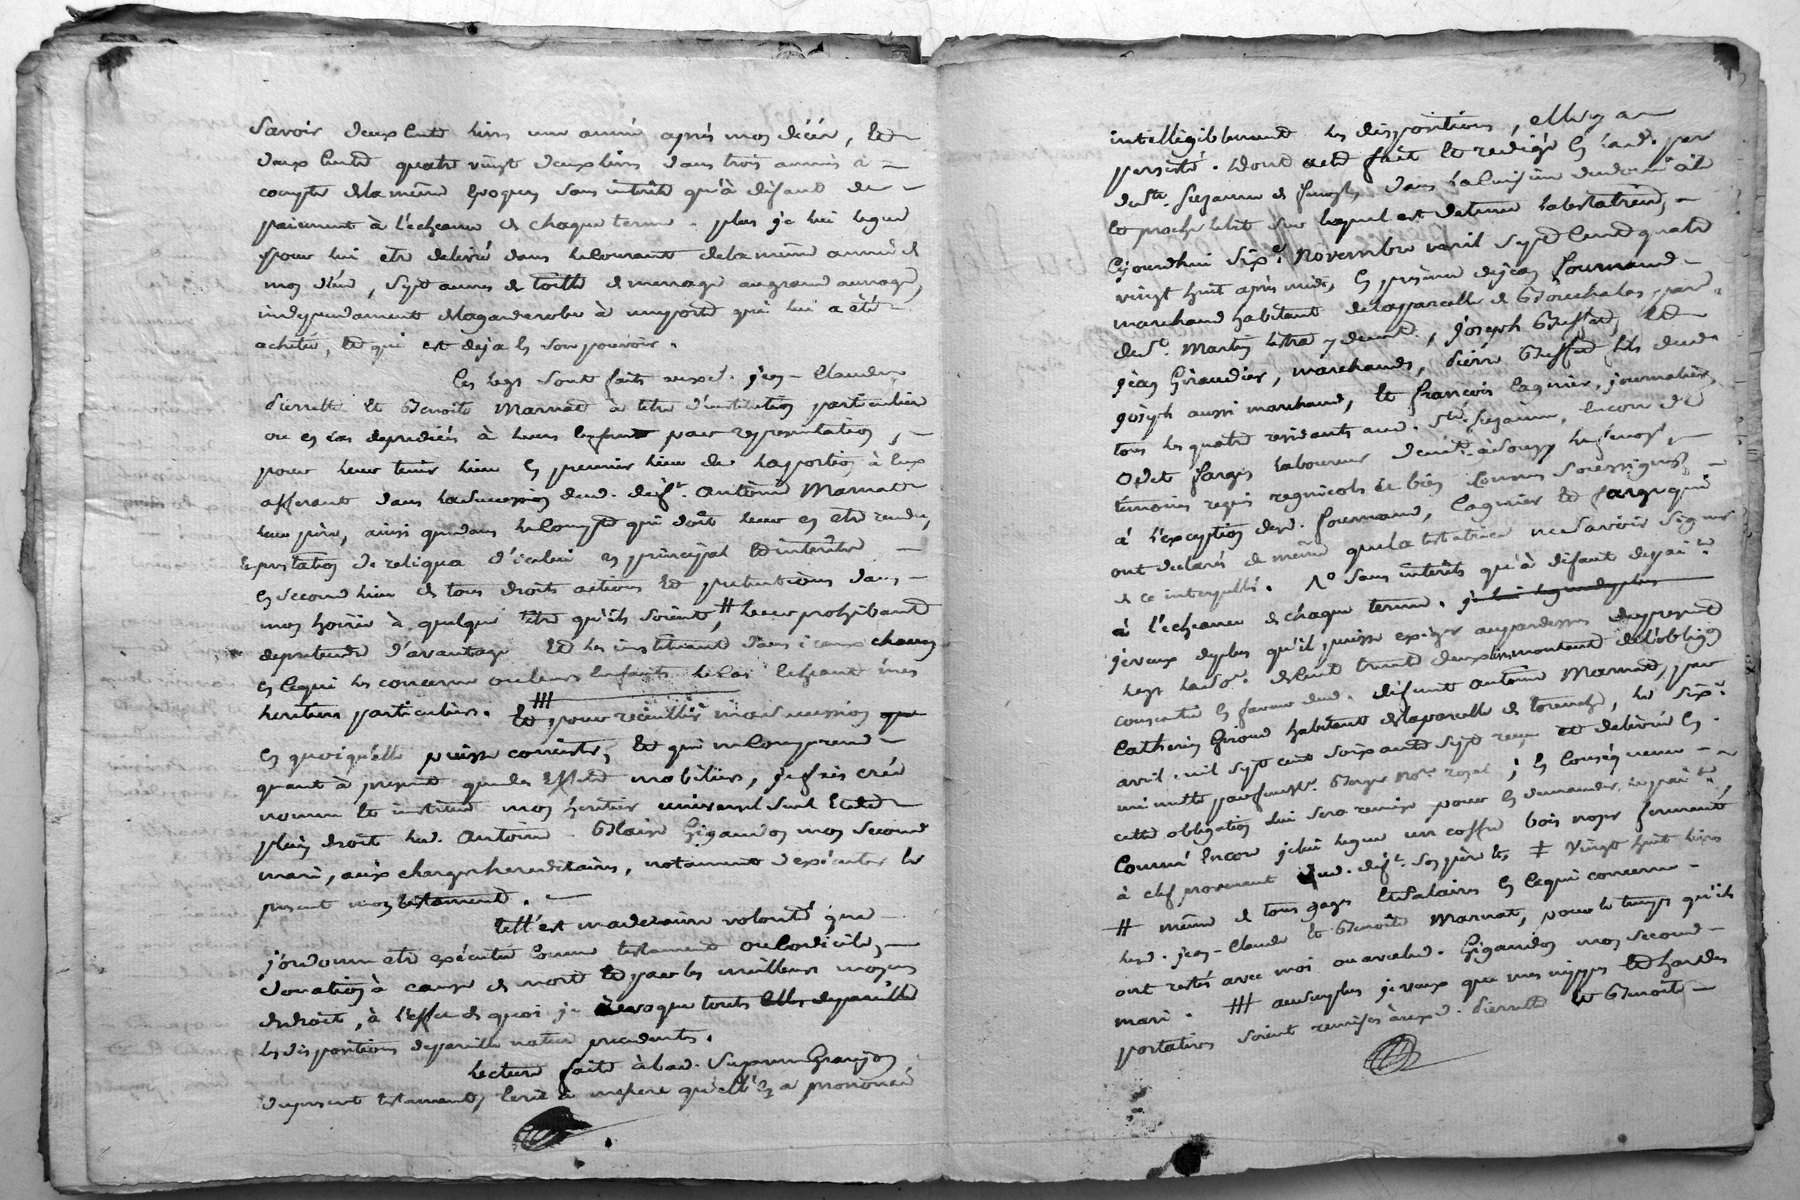 Savoir deux cents livres une année après mon décès, Et
deux cents quatre vingt deux livres dans trois années à
compte de la même Epoque, sans intérêts qu'à défaut de
paiement à l'échéance de chaque terme. plus je lui legue
pour lui etre delivré dans le courant de la même année de
mon décès, sept aunes de toille de menage au grand aunage,
independament de la garderobe à qui lui a été
achetée, Et qui est deja En son pouvoir.
Ces legs sont faits auxd. jean-Claude,
pierrette Et Benoite Marnat à titre d'institution particulière
ou en cas de predécès à leurs Enfants par representation,
pour leur tenir lieu En premier lieu de la portion à Eux
afferante dans la succession dud. deft. antoine Marnat
leur père, ainsi que dans le compte qui doit leur en etre rendu,
Et prestation de reliqua d'icelui en principal Et intérêts
En second lieu de tous droits actions Et prétentions dans
mon hoirie à quelque titre qu'ils soient, # leur prohibant
de pretendre d'avantage Et les instituant dans iceux chacun
En ce qui les concerne ou leurs Enfants le cas Echeant mes
heritiers particuliers. ###
Et pour recueillir ma succession que
En quoi qu'elle puisse consister, Et qui ne comprend
quant à present que des Effets mobiliers, je fais crée
nomme Et institue mon heritier universel seul Et de
plein droit led. Antoine Blaise Gigandon mon second
mari, aux charges hereditaires, notamment d'executer le
present mon testament.
telle est ma derniere volonté que
j'ordonne etre exécutée comme testament ou codicile,
donation à cause de mort Et par les meilleurs moyens
de droit, à l'effet de quoi je revoque toutes celles de pareille
les dispositions de pareille nature precedentes.
Lecture faite à lad. Suzanne Granjon
du present testament, Ecrit à mesure qu'elle En a prononcé
intelligiblement les dispositions, elle y a
persisté. Dont acte fait Et redigé En lad. par
de Ste. Suzanne dans la cuisine
Et proche le lit sur lequel est detenue la testatrice,
Cejourdhui sixe. Novembre mil sept cent quatre
vingt huit après midi, En presence de jean fournand
marchand habitant de la parcelle de Bouchalas par.
de St. Martin lestra y demt., joseph Buffard, Et
jean Giraudier, marchands, pierre Buffard fils dud.
joseph aussi marchand, Et françois Cagnier, journalier,
tous les quatre residants aud. Ste. Suzanne, Encore de
Odet farges laboureur demt. à
temoins requis regnicoles Et bien connus soussignés
à l'exception desd. fournand, Cagnier Et farges qui
ont declarés de même que la testatrice ne savoir signer
de ce interpellés. No sans intérêts qu'à defaut de paimt.
à l'echeance de chaque terme. je lui legue de plus
je veux de plus qu'il puisse exiger au par dessus du present
legs la so. de cent trente deux livres montant de l'obligon
consentie En faveur dud. défunt antoine Marnat, par
Catherin Giroud habitant de la parcelle de la sixe.
avril mil sept cent soixante sept reçu et delivrée En
minutte par Mtre. Berger nore. royal; En conséquence
cette obligation lui sera remise pour En demander le paimt.
Comme Encore je lui legue un coffre bois noyer fermant
à clef provenant dud. deft. son père Et, ‡ vingt huit livres
# même de tous gages Et salaires En ce qui concerne
lesd. jean-Claude Et Benoite Marnat, pour le temps qu'ils
ont restés avec moi ou avec led. Gigandon mon second
mari. ### au surplus je veux que mes nippes Et hardes
portatives soient remises auxd. pierrette Et Benoite